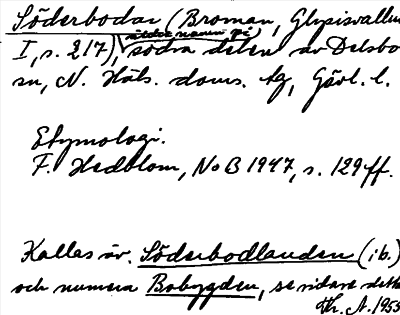 Söderbodar (Broman, Glysisvallur
I, s. 217), äldre namn på södra delen av Delsbo
sn, N. Häls. doms. hg, Gävl. l.
Etymologi.
F. Hedblom, NoB 1947, s. 129 ff.
Kallas äv. Söderbodlanden (ib.)
och numera Bobygden, se vidare detta
Th. A. 1955